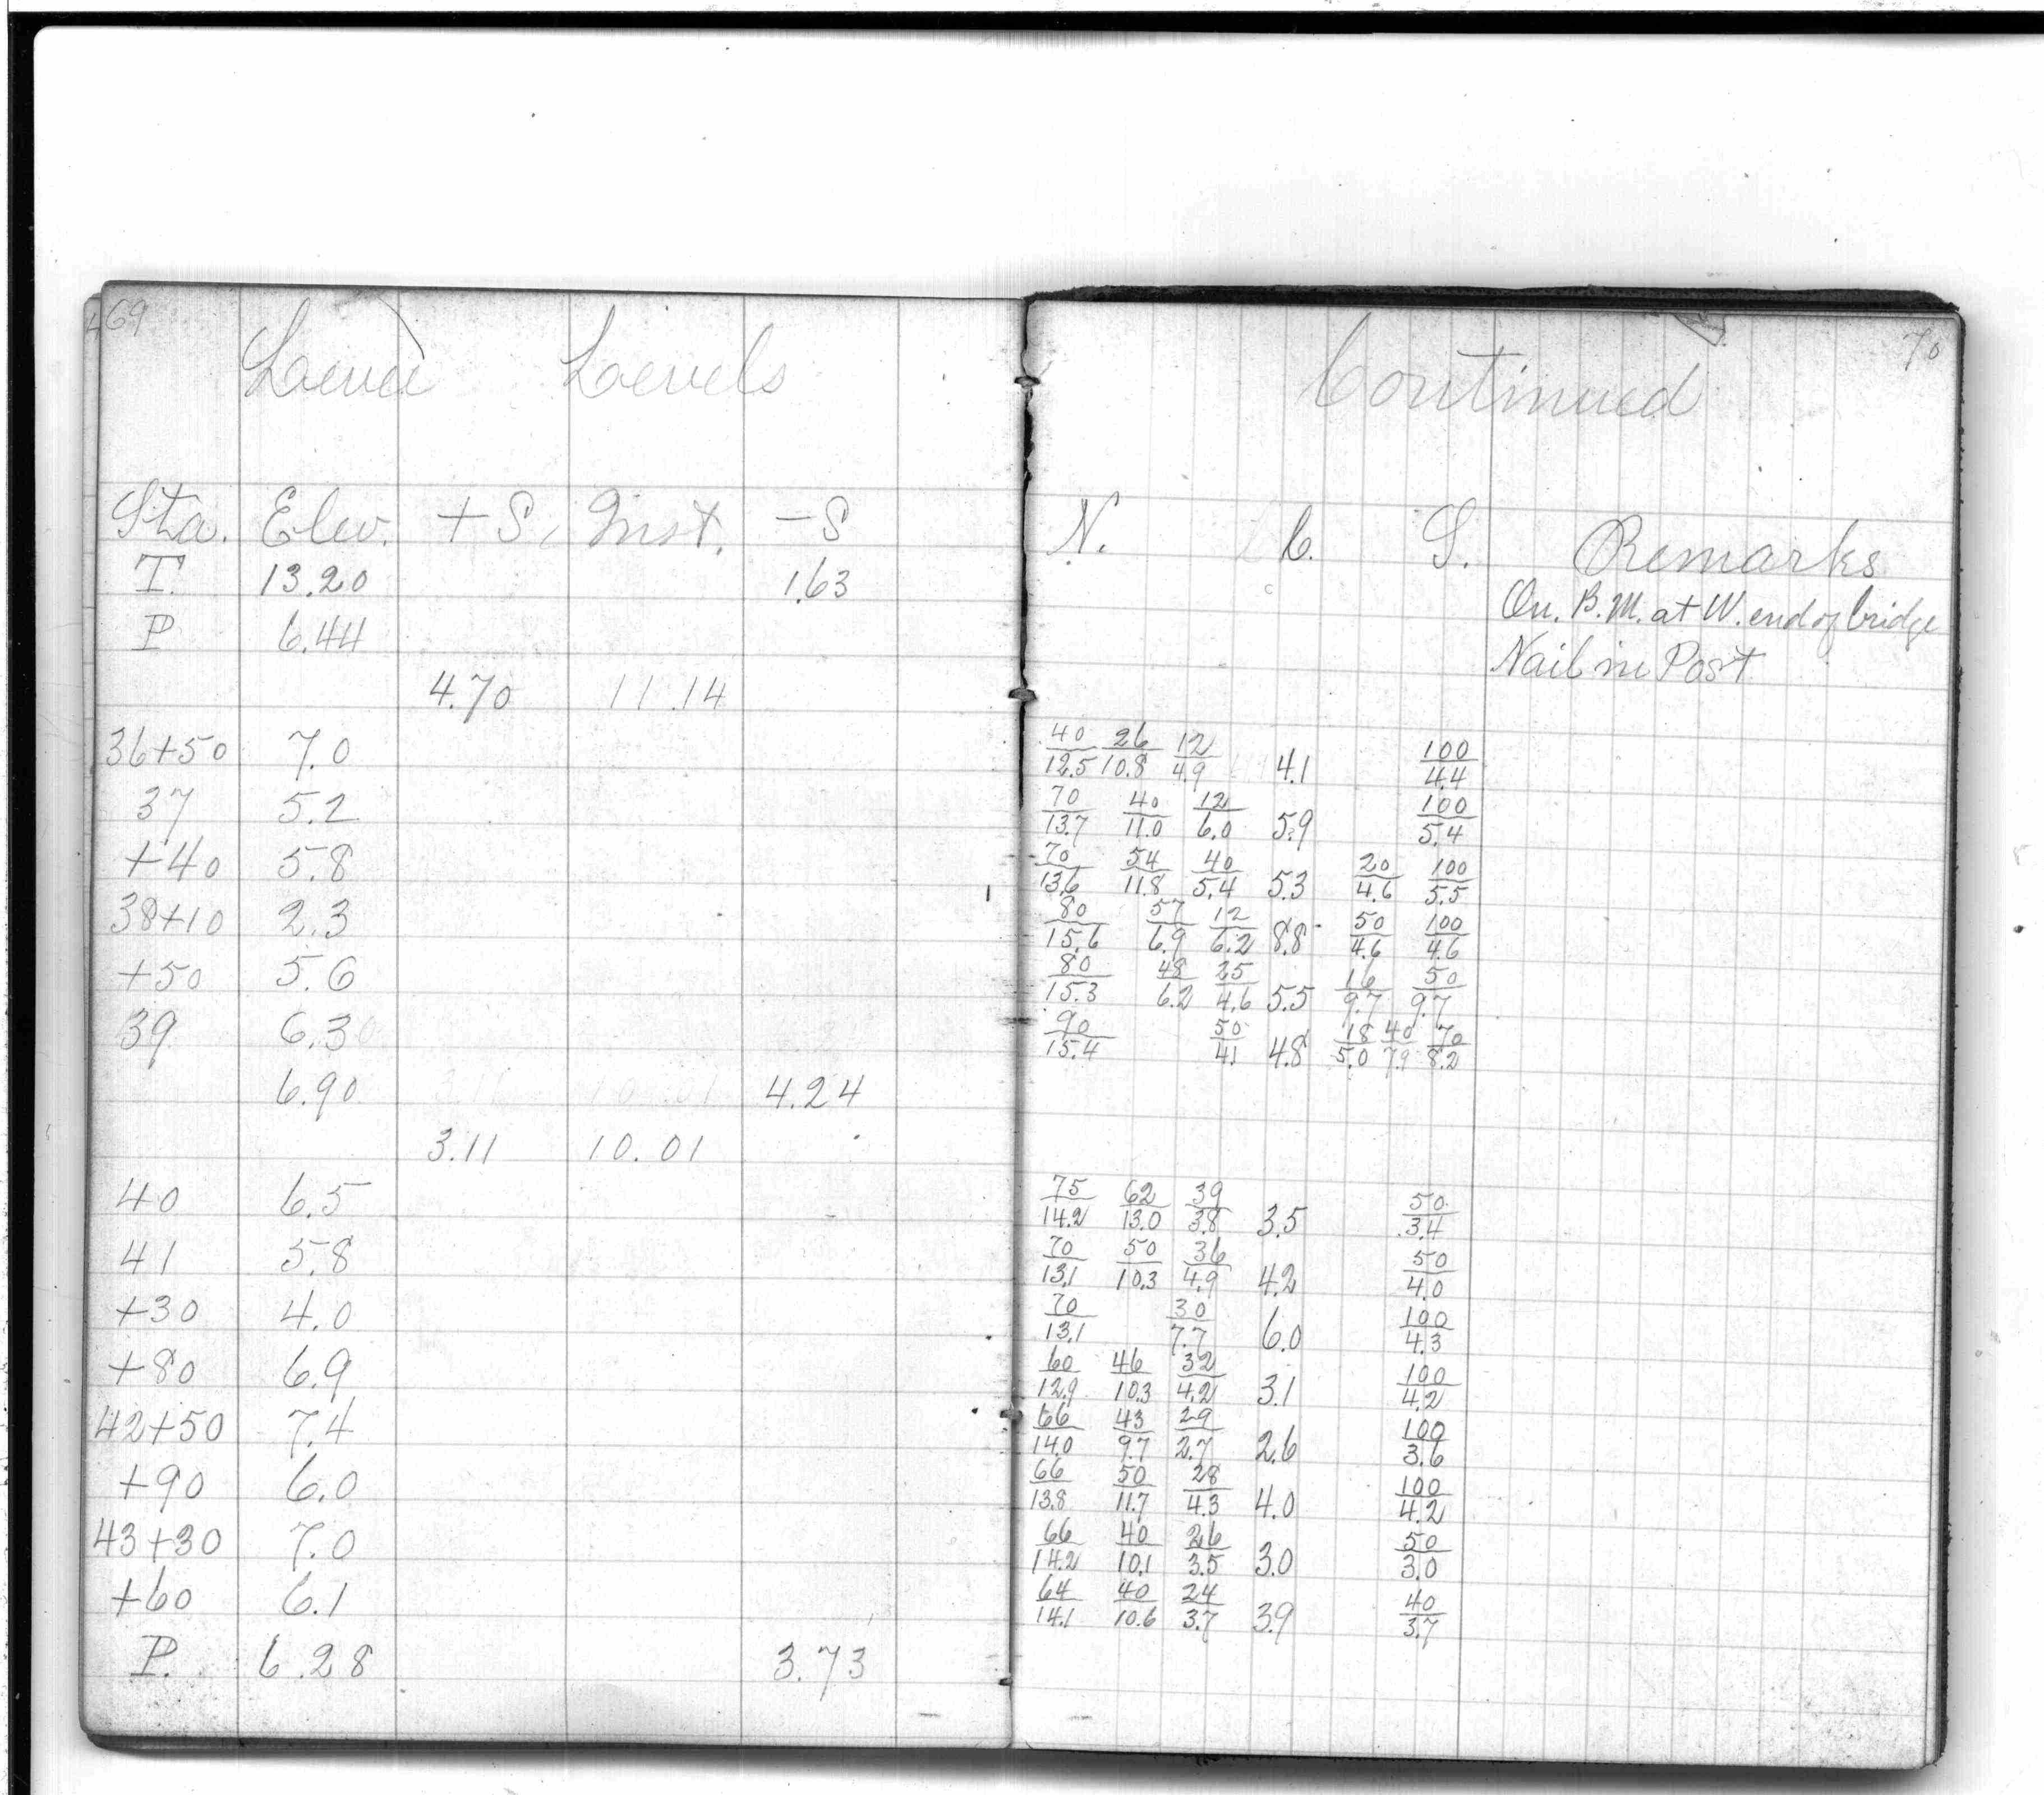 69
Levee Levels
Sta. Elev. + S. Inst. - S
T. 13.20 1.63
P 6.44
4.70 11.14
36+50 7.0
37 5.2
+40 5.8
38+10 2.3
+50 5.6
39 6.3
6.90 4.24
3.11 10.01
40 6.5
41 5.8
+30 4.0
+80 6.9
42+50 7.4
+90 6.0
43+30 7.0
+60 6.1
P. 6.28 3.73
70
Continued
N. C. S. Remarks
On. B.M. at W. end of bridge
Nail in Post
40/12.5 26/10.8 12/4.9 4.1 100/4.4
70/13.7 40/11.0 12/6.0 5.9 100/5.4
70/13.6 54/11.8 40/5.4 5.3 20/4.6 100/5.5
80/15.6 57/6.9 12/6.2 8.8 50/4.6 100/4.6
80/15.3 48/6.2 25/4.6 5.5 16/9.7 50/9.7
90/15.4 50/4.1 4.8 18/5.0 40/7.9 70/8.2
75/14.2 62/13.0 39/3.8 3.5 50/3.4
70/13.1 50/10.3 36/4.9 4.2 50/4.0
70/13.1 30/7.7 6.0 100/4.3
60/12.9 46/10.3 32/4.2 3.1 100/4.2
66/14.0 43/9.7 29/2.7 2.6 100/3.6
66/13.8 50/11.7 28/4.3 4.0 100/4.2
66/14.2 40/10.1 26/3.5 3.0 50/3.0
64/14.1 40/10.6 24/3.7 3.9 40/3.7